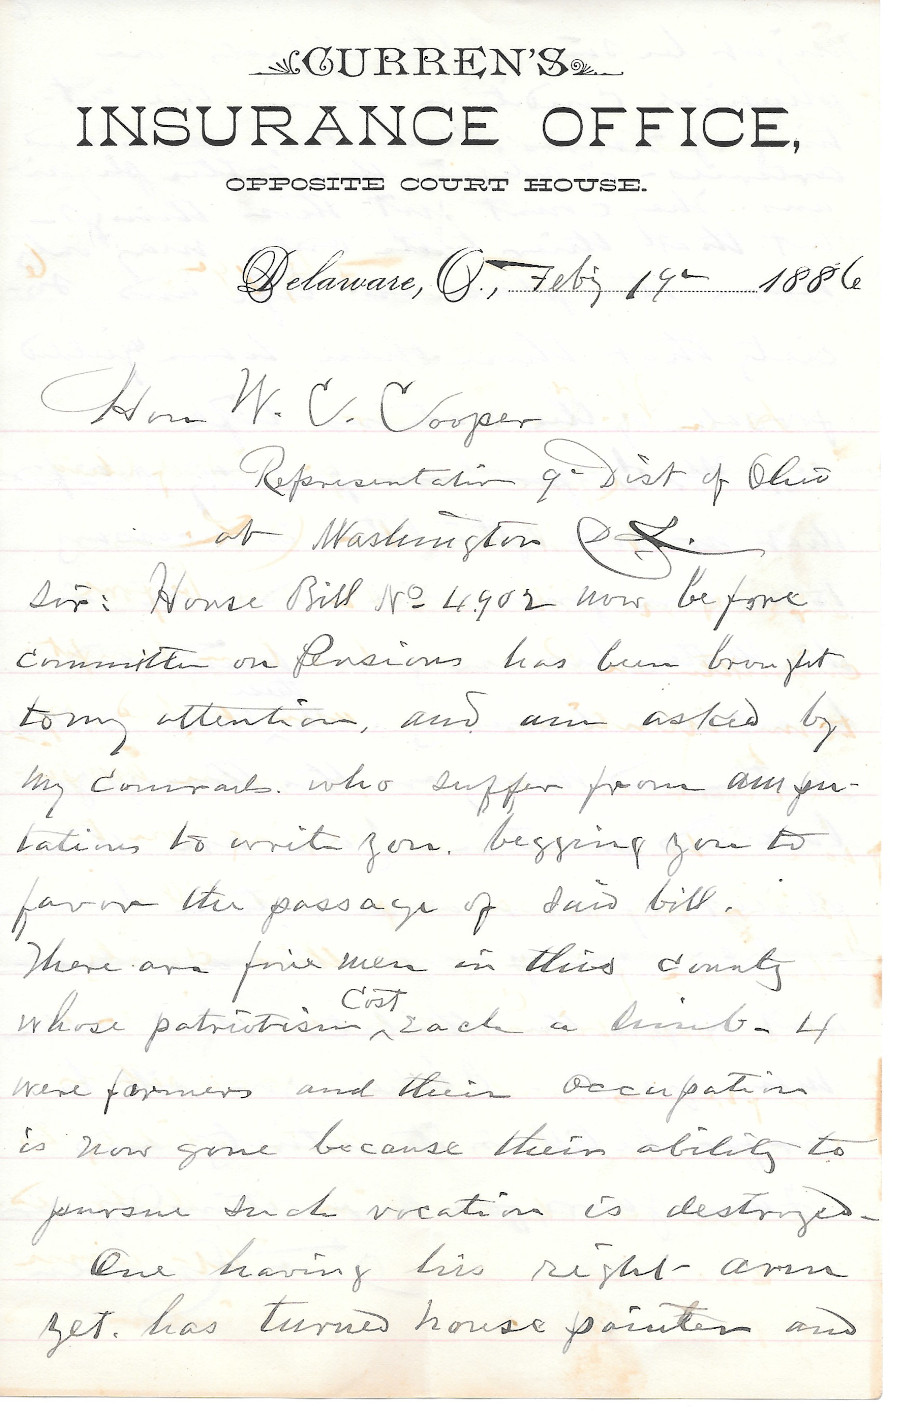 CURREN'S
INSURANCE OFFICE,
OPPOSITE COURT HOUSE.
Delaware, O., Feb'y 19th 1886
Hon W. C. Cooper
Representative 9th Dist of Ohio
at Washington D.C.
Sir: House Bill No 4902 now before
committee on Pensions has been brought
to my attention, and am asked by
my Comrads. who suffer from ampu-
tations to write you. begging you to
favor the passage of said bill.
There are five men in this county
whose patriotism ^Cost Each a limb - 4
were farmers and their occupation
is now gone because their ability to
pursue such vocation is destroyed -
One having his right arm
yet. has turned house painter and